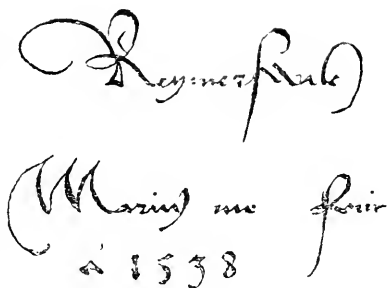 Reymerswale
Marinus me fecit
a 1538